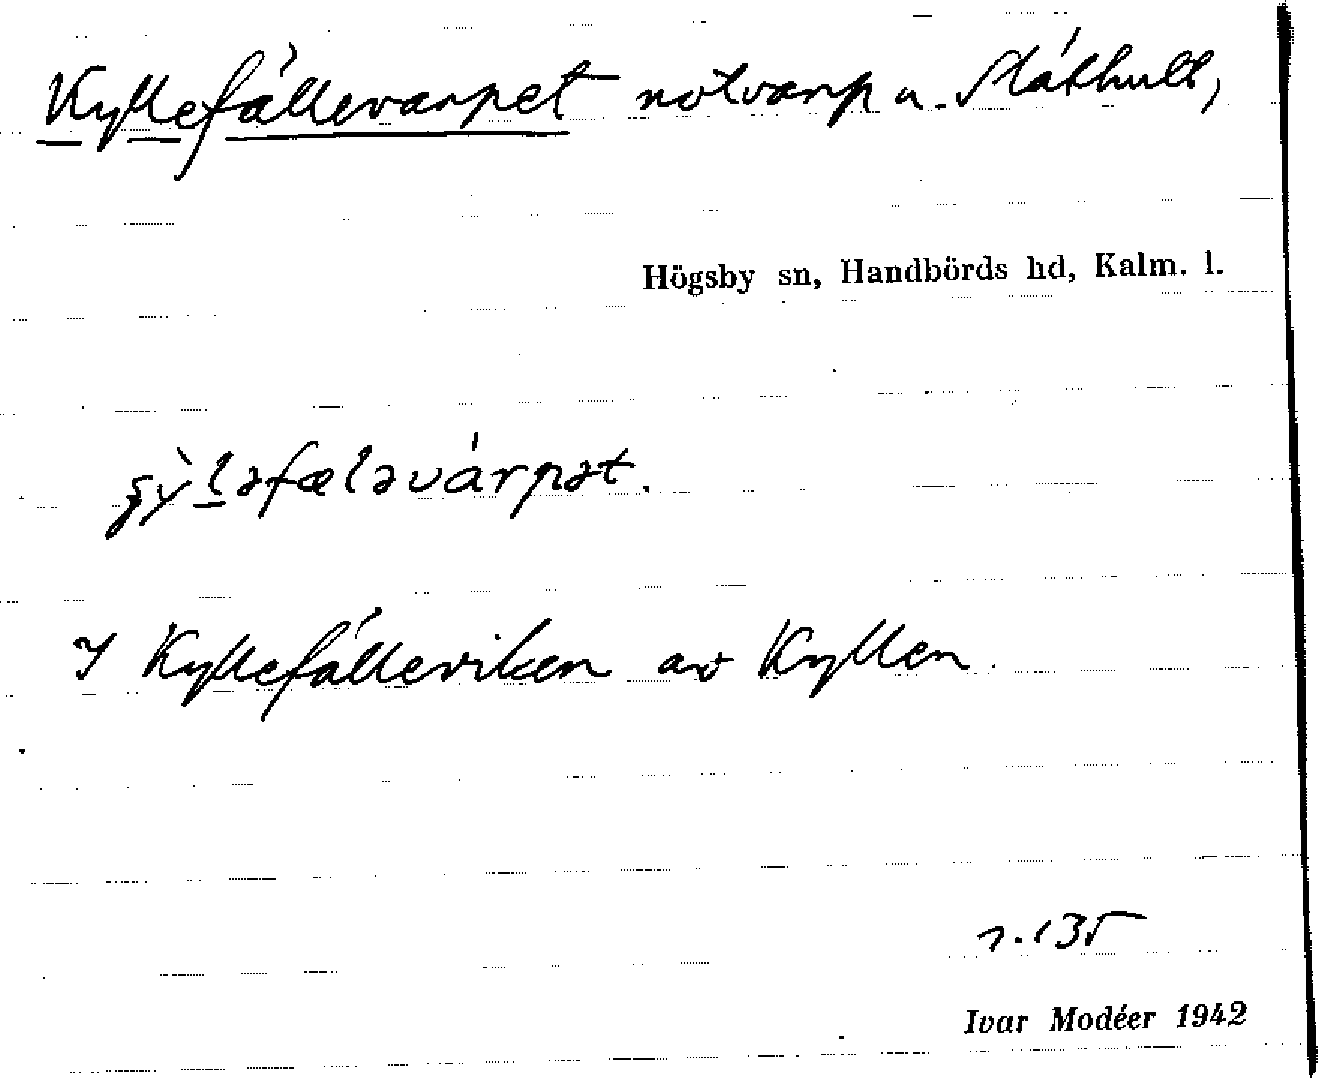 Kyllefällevarpet notvarp u. Slåthult,
Högsby sn, Handbörds hd, Kalm. l.
ʂỳl̠əfæləvárpət.
I Kyllefälleviken av Kyllen.
s. 135
Ivar Modéer 1942